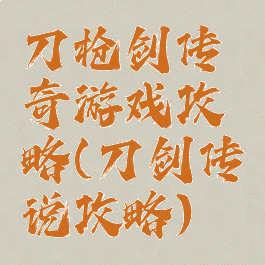 刀枪剑传
奇游戏攻
略(刀剑传
说攻略)